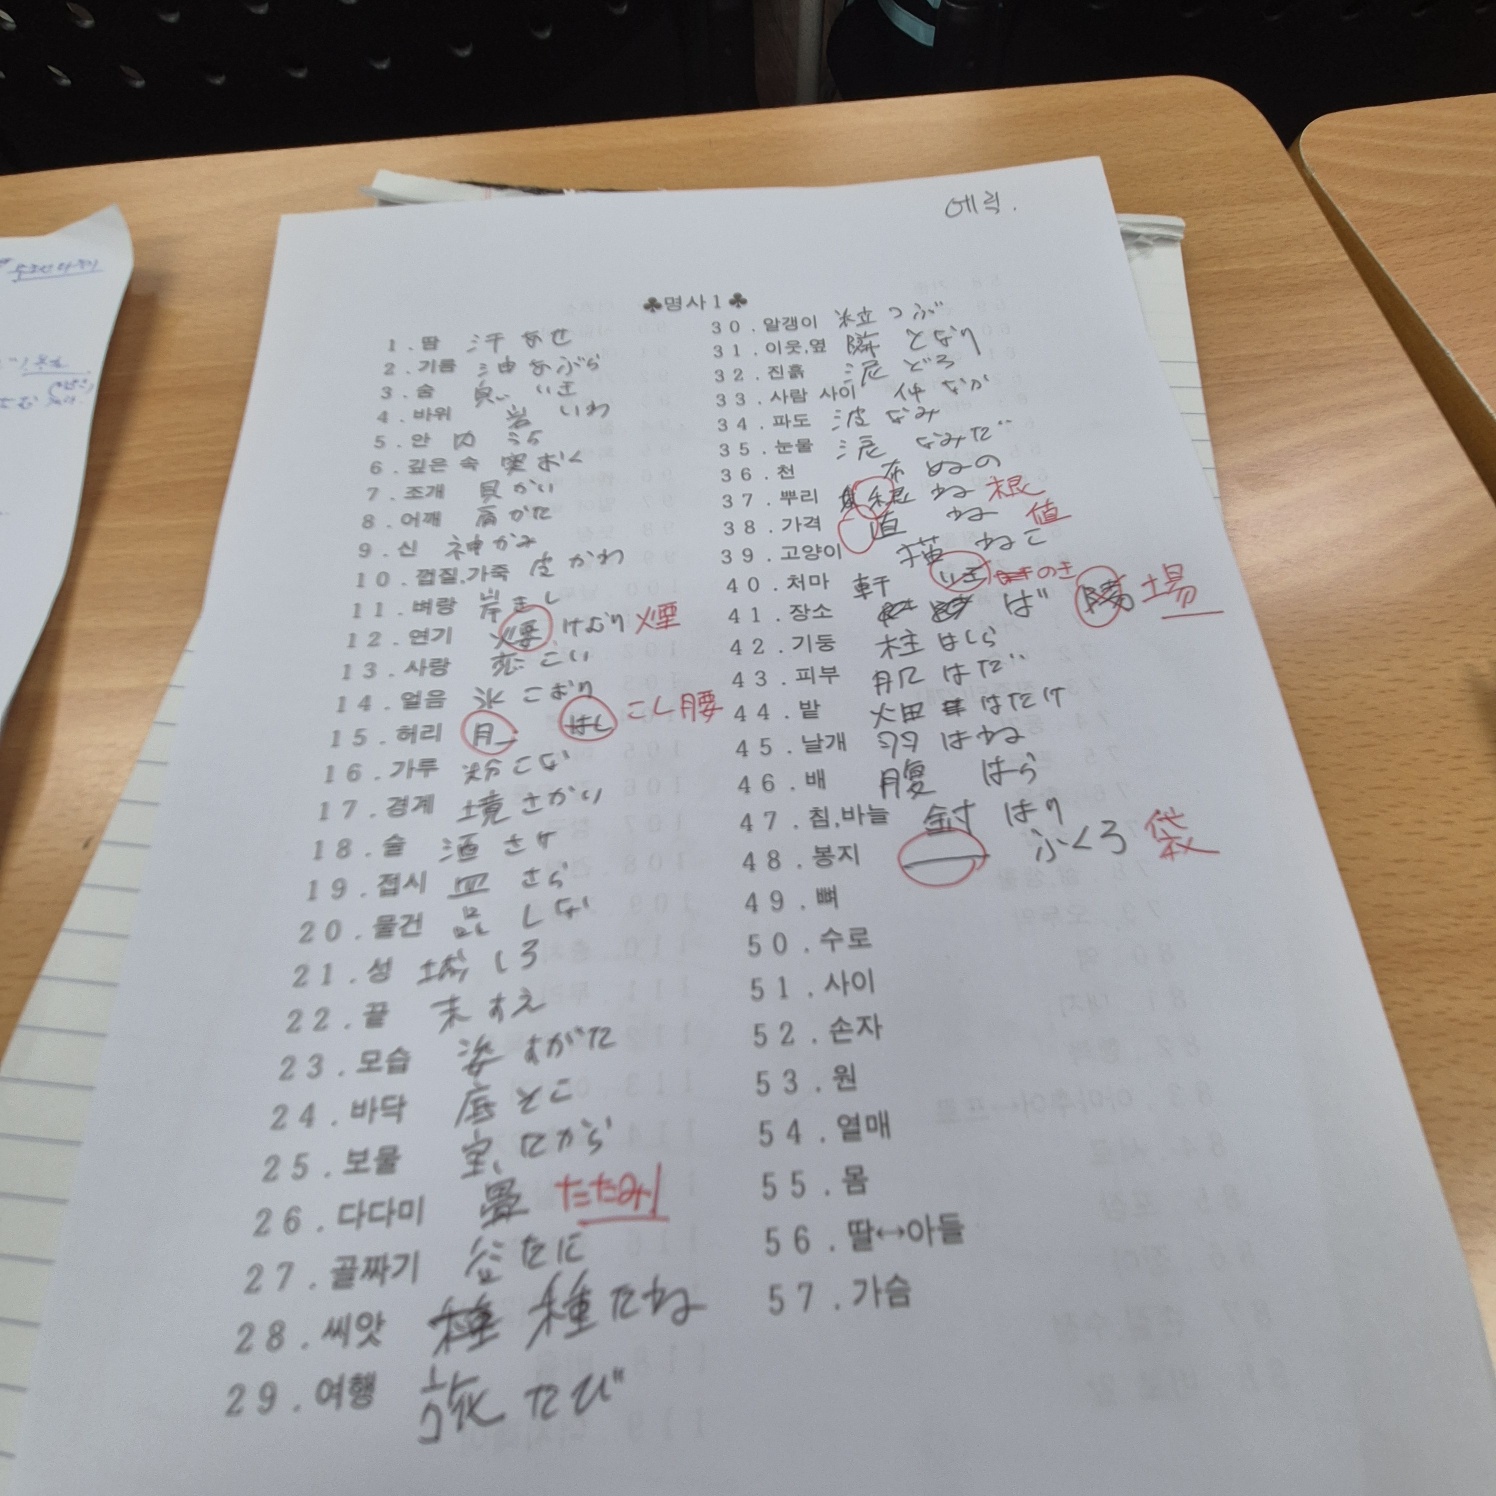 에릭.
♣명사1♣
1. 땀 汗 あせ
2. 기름 油 あぶら
3. 숨 息 いき
4. 바위 岩 いわ
5. 안 内 うち
6. 깊은 속 奥 おく
7. 조개 貝 かい
8. 어깨 肩 かた
9. 신 神 かみ
10. 껍질,가죽 皮 かわ
11. 벼랑 岸 きし
12. 연기 けむり 煙
13. 사랑 恋 こい
14. 얼음 氷 こおり
15. 허리 月 はし こし 腰
16. 가루 粉 こな
17. 경계 境 さかい
18. 술 酒 さけ
19. 접시 皿 さら
20. 물건 品 しな
21. 성 城 しろ
22. 끝 末 すえ
23. 모습 姿 すがた
24. 바닥 底 そこ
25. 보물 宝 たから
26. 다다미 畳 たたみ
27. 골짜기 谷 たに
28. 씨앗 種 種 たね
29. 여행 旅 たび
30. 알갱이 粒 つぶ
31. 이웃,옆 隣 となり
32. 진흙 泥 どろ
33. 사람 사이 仲 なか
34. 파도 波 なみ
35. 눈물 涙 なみだ
36. 천 布 ぬの
37. 뿌리 根 ね 根
38. 가격 直 ね 値
39. 고양이 猫 ねこ
40. 처마 軒 いき のき
41. 장소 ば 場
42. 기둥 柱 はしら
43. 피부 肌 はだ
44. 밭 畑 はたけ
45. 날개 羽 はね
46. 배 腹 はら
47. 침,바늘 針 はり
48. 봉지 ふくろ 袋
49. 뼈
50. 수로
51. 사이
52. 손자
53. 원
54. 열매
55. 몸
56. 딸↔아들
57. 가슴